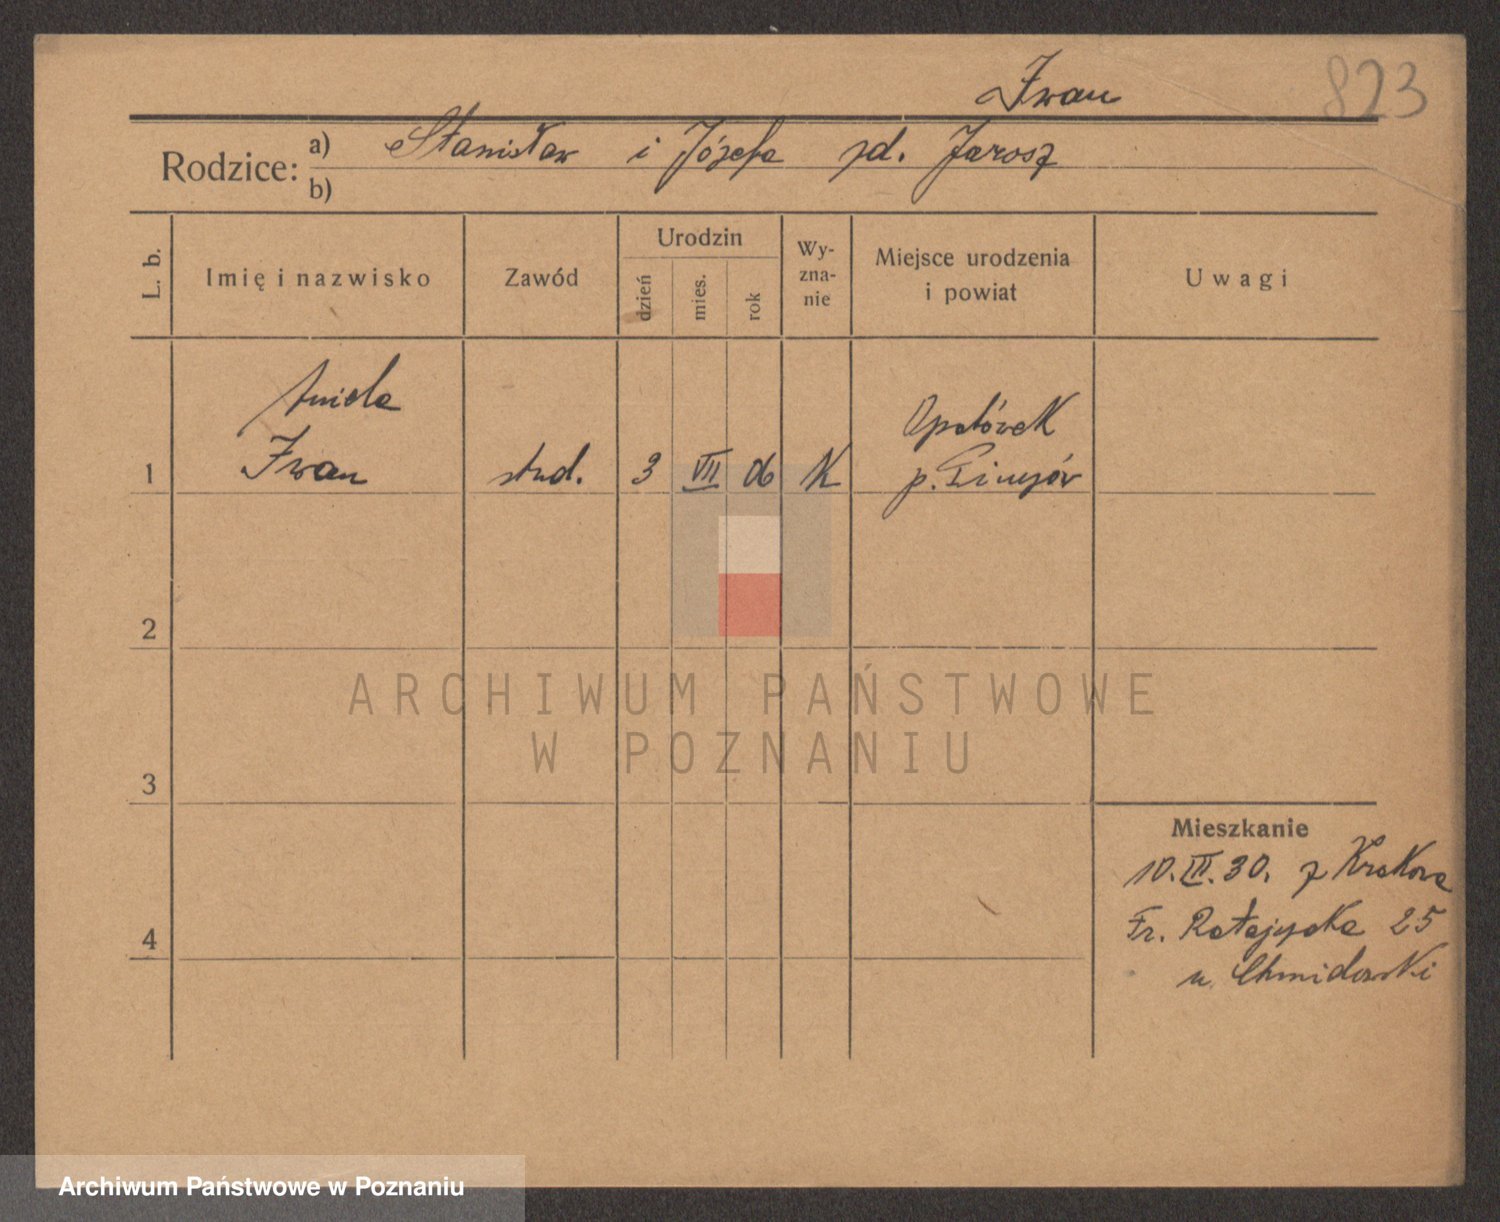 Iwan
823
Rodzice: a) Stanisław i Józefa zd. Jarosz
b)
L. b.
Imię i nazwisko
Zawód
Urodzin
dzień
mies.
rok
Wy-
zna-
nie
Miejsce urodzenia
i powiat
Uwagi
Aniela
Opatówek
1 Iwan stud. 3 VII 06 K p.
2
3
4
Mieszkanie
10.III.30. z Krakowa
Fr. Ratajczaka 25
u. Chmidowski
ARCHIWUM PAŃSTWOWE
W POZNANIU
Archiwum Państwowe w Poznaniu